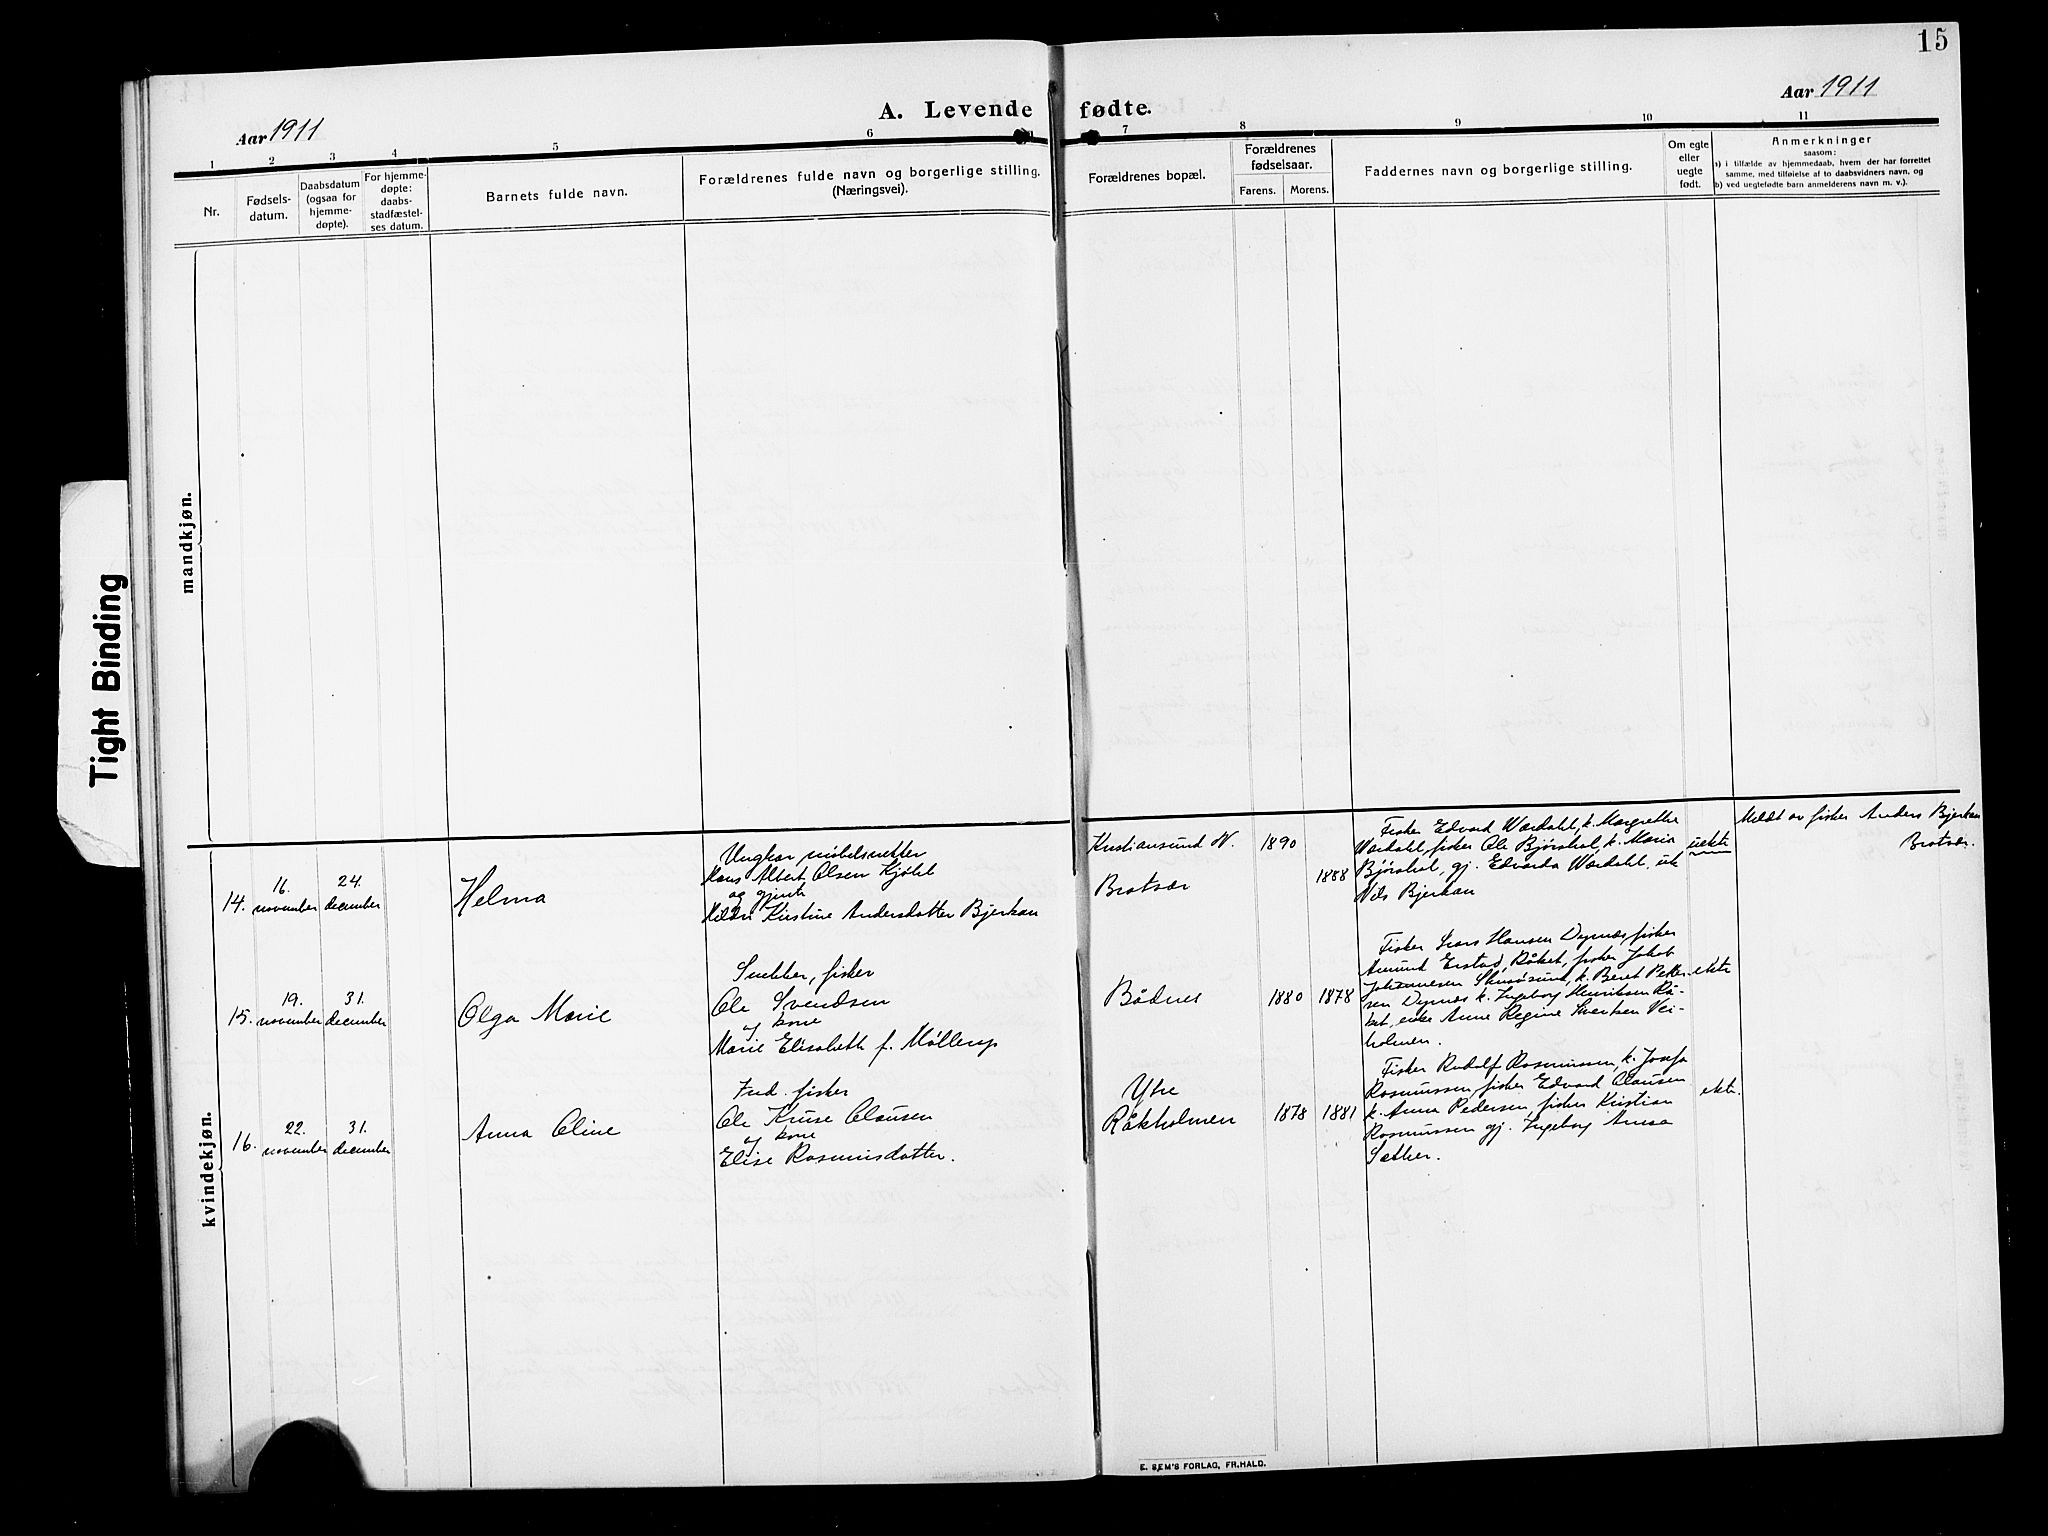 15
Aar 1911
A. Levende fødte.
Aar 1911
1 2 3 4 5 6 7 8 9 10 11
Nr.
Fødsels-
datum.
Daabsdatum
(ogsaa for
hjemme-
døpte).
For hjemme-
døpte:
daabs-
stadfæstel-
ses datum.
Barnets fulde navn.
Forældrenes fulde navn og borgerlige stilling.
(Næringsvei).
Forældrenes bopæl.
Forældrenes
fødselsaar.
Farens. Morens.
Faddernes navn og borgerlige stilling.
Om egte
eller
uegte
født.
Anmerkninger
saasom:
a) i tilfælde av hjemmedaab, hvem der har forrettet
samme, med tilføielse af to daabsvidners navn, og
b) ved uegtefødte barn anmelderens navn m. v.).
mandkjøn.
Tight Binding
kvindekjøn.
14.
16.
november
24.
december
Helma
Ungkar møbelsnekker
Hans Albert Olsen Kjøl
og gjente
Kirstine Andersdatter Bjerkan
Kristiansund N.
Bratvær
1890
1888
Fisker Edvard Wærdahl, k. Margrethe
Wærdahl, fisker Ole Bjørshol, k. Maria
Bjørshol, gj. Edvarda Wærdahl, uk
Nils Bjerkan
uekte
Meldt av fisker Anders Bjerkan
Bratvær.
15.
19.
november
31.
december
Olga Marie
Snekker, fisker
Ole Svendsen
og kone
Marie Elisabeth f. Møllerup
Bådnes
1880
1878
Fisker Lars Hansen Dyrnæs, fisker
Amund Erstad, Råket, fisker Jakob
Johannesen Skarsøsund, k. Beret Petter-
sen Dyrnæs k. Ingeborg Henriksen Rå-
ket, enke Anne Regine Sivertsen Vei-
holmen.
ekte
16.
22.
november
31.
december
Anna Oline
Fisker
Ole Kruse Clausen
og kone
Elise Rasmusdatter.
Ytre
Råkholmen
1878
1881
Fisker Rudolf Rasmussen, k. Josefa
Rasmussen, fisker Edvard Clausen
k. Anna Pedersen, fisker Kristian
Rasmussen gj. Ingeborg Anna
Sæther.
ekte.
E. SEM'S FORLAG, FR.HALD.